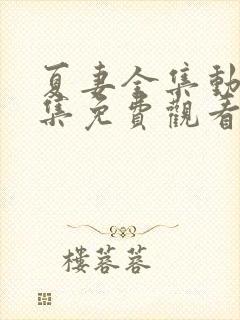 夏妻全集動
集免費觀看
樓蓉蓉